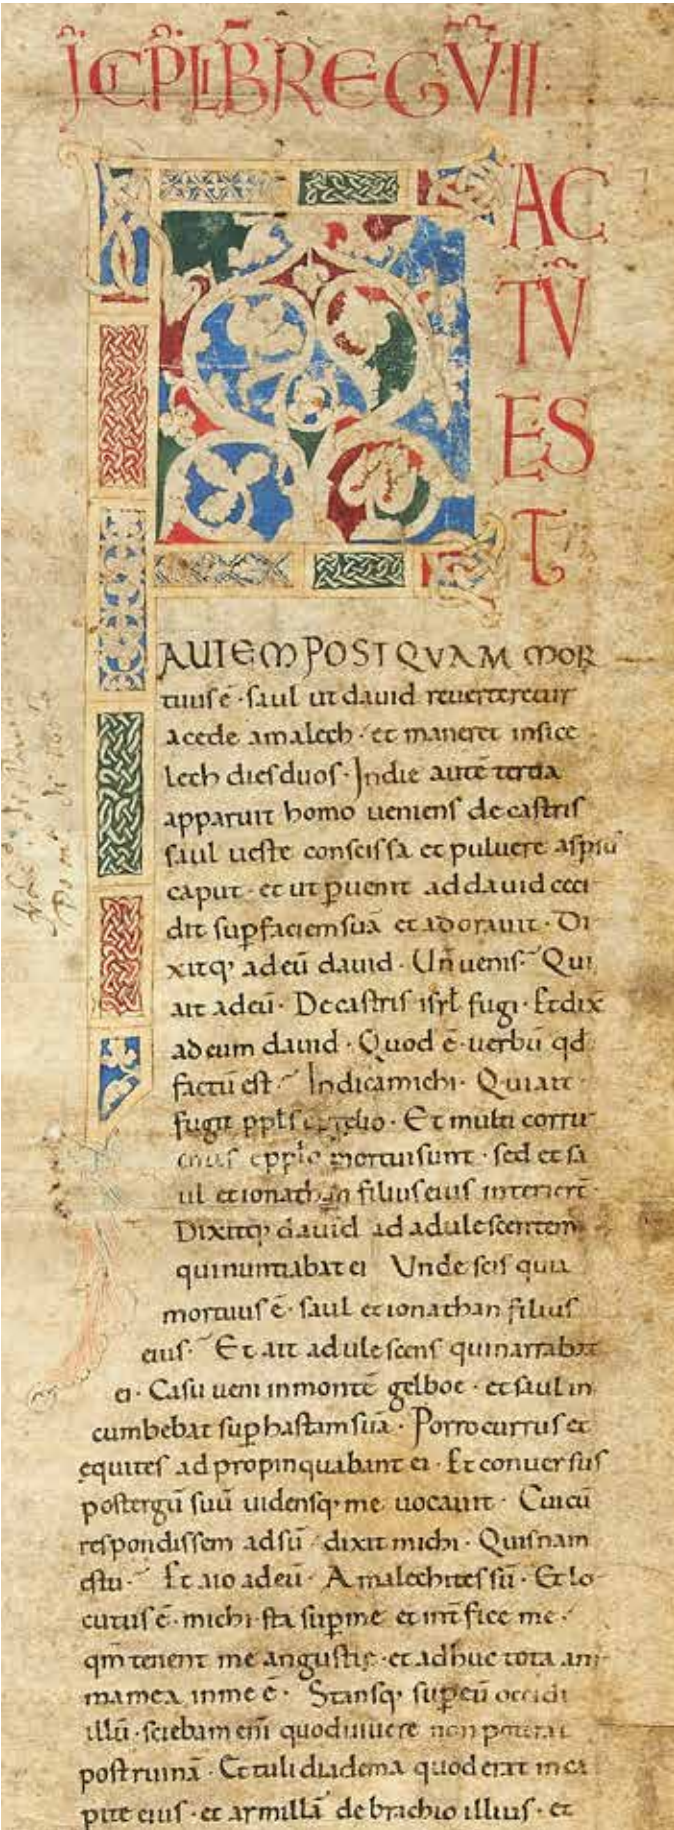 ĪCIP̄ LIB̄ REGV̄ II
F
AC
TV̄
ES
T
AUTEM POSTQVAM MOR
tuus ē · saul ut david reverteretur
acede amalech · et maneret insice
lech dies duos · In die autē tertia
apparuit homo ueniens de castris
saul ueste conscissa et puluere aspsū
caput · et ut puenit ad dauid ceci
dit sup faciem suā et adorauit · Di
xitq; ad eū david · Un̄ uenis · Qui
ait ad eū · De castris isrl̄ fugi · Et dix̄
ad eum dauid · Quod ē uerbū qd̄
factū est · Indica michi · Qui ait ·
fugit ppl̄s e p̄elio · Et multi corru
entes e pplo mortui sunt · sed et sa
ul et ionathan filius eius interierē ·
Dixitq; dauid ad adulescentem
qui nuntiabat ei Unde scis quia
mortuus ē · saul et ionathan filius
eius · Et ait adulescens qui narrabat
ei · Casu ueni in montē gelboe · et saul in
cumbebat sup hastam suā · Porro currus et
equites adpropinquabant ei · Et conuersus
post ergū suū uidensq; me uocauit · Cui cū
respondissem adsū dixit michi · Quisnam
es tu · Et aio ad eū · Amalechites sū · Et lo
cutus ē · michi · sta sup me et int̄fice me ·
qm̄ tenent me angustie · et adhuc tota ani
ma mea in me ē · Stansq; sup eū occidi
illū · sciebam eni quod uiuere non poterat
post ruinā · Et tuli diadema quod erat in ca
pite eius · et armillā de brachio illius · et